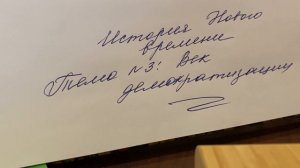 История Нового
времени
Тема №3: Век
демократизации